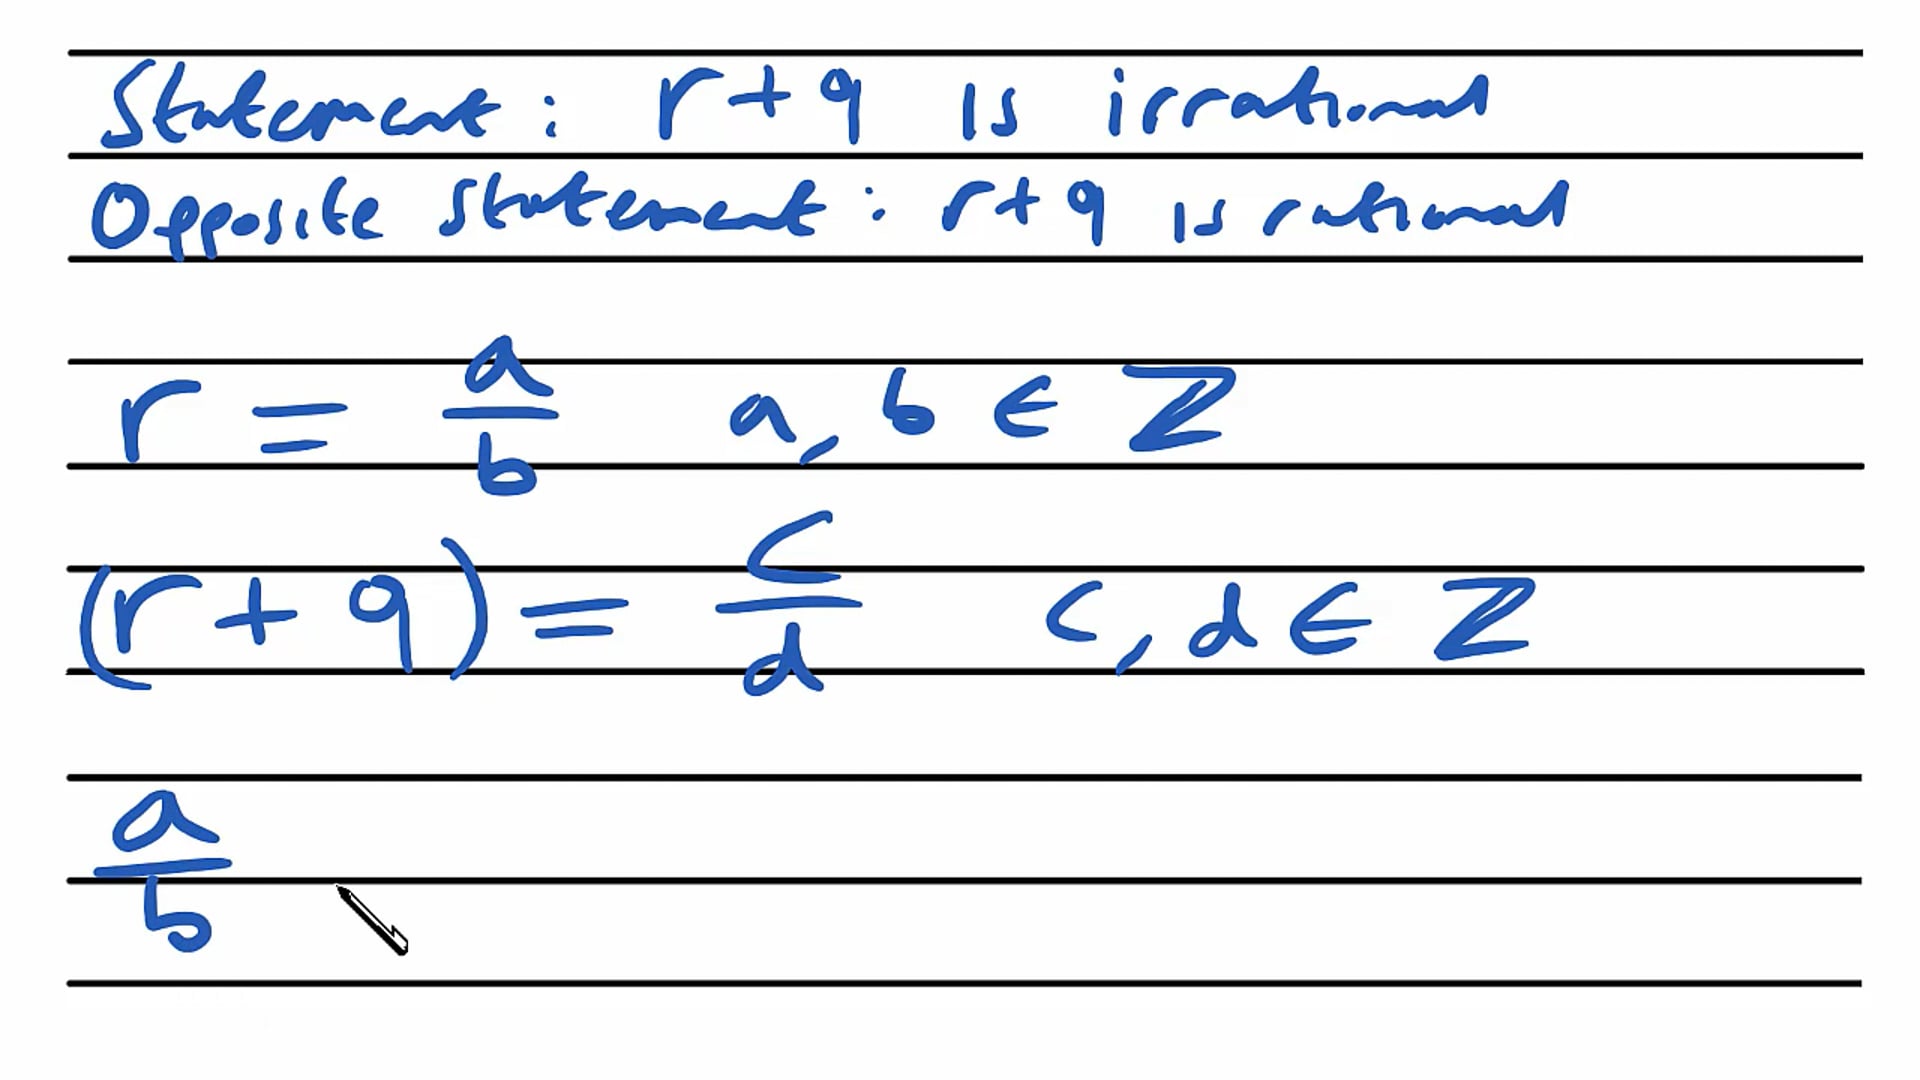 Statement: r + q is irrational
Opposite statement: r + q is rational
r = a/b a, b ∈ ℤ
(r + q) = c/d c, d ∈ ℤ
a/b